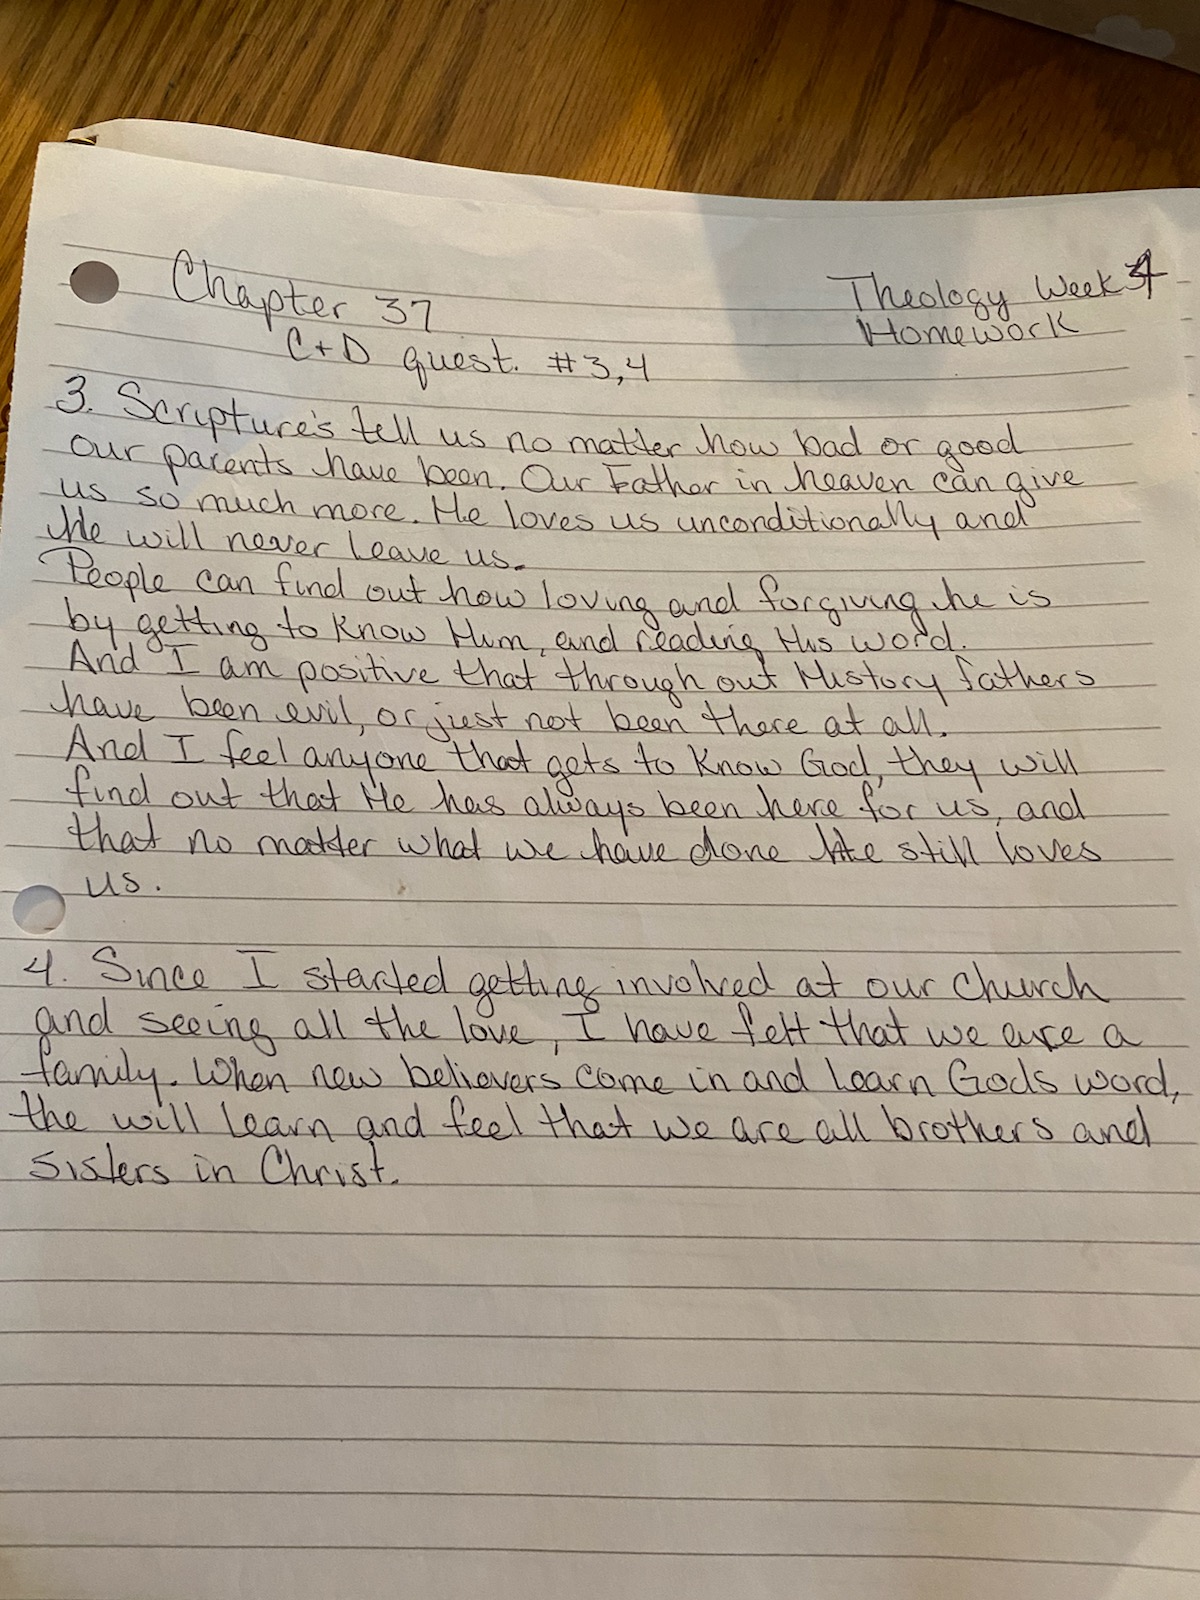 Chapter 37
Theology Week 4
Homework
C+D quest. #3,4
3. Scripture's tell us no matter how bad or good
our parents have been. Our Father in heaven can give
us so much more. He loves us unconditionally and
He will never leave us.
People can find out how loving and forgiving he is
by getting to know Him, and reading His word.
And I am positive that through out History fathers
have been evil, or just not been there at all.
And I feel anyone that gets to know God, they will
find out that He has always been here for us, and
that no matter what we have done He still loves
us.
4. Since I started getting involved at our church
and seeing all the love, I have felt that we are a
family. When new believers come in and learn Gods word,
the will learn and feel that we are all brothers and
sisters in Christ.